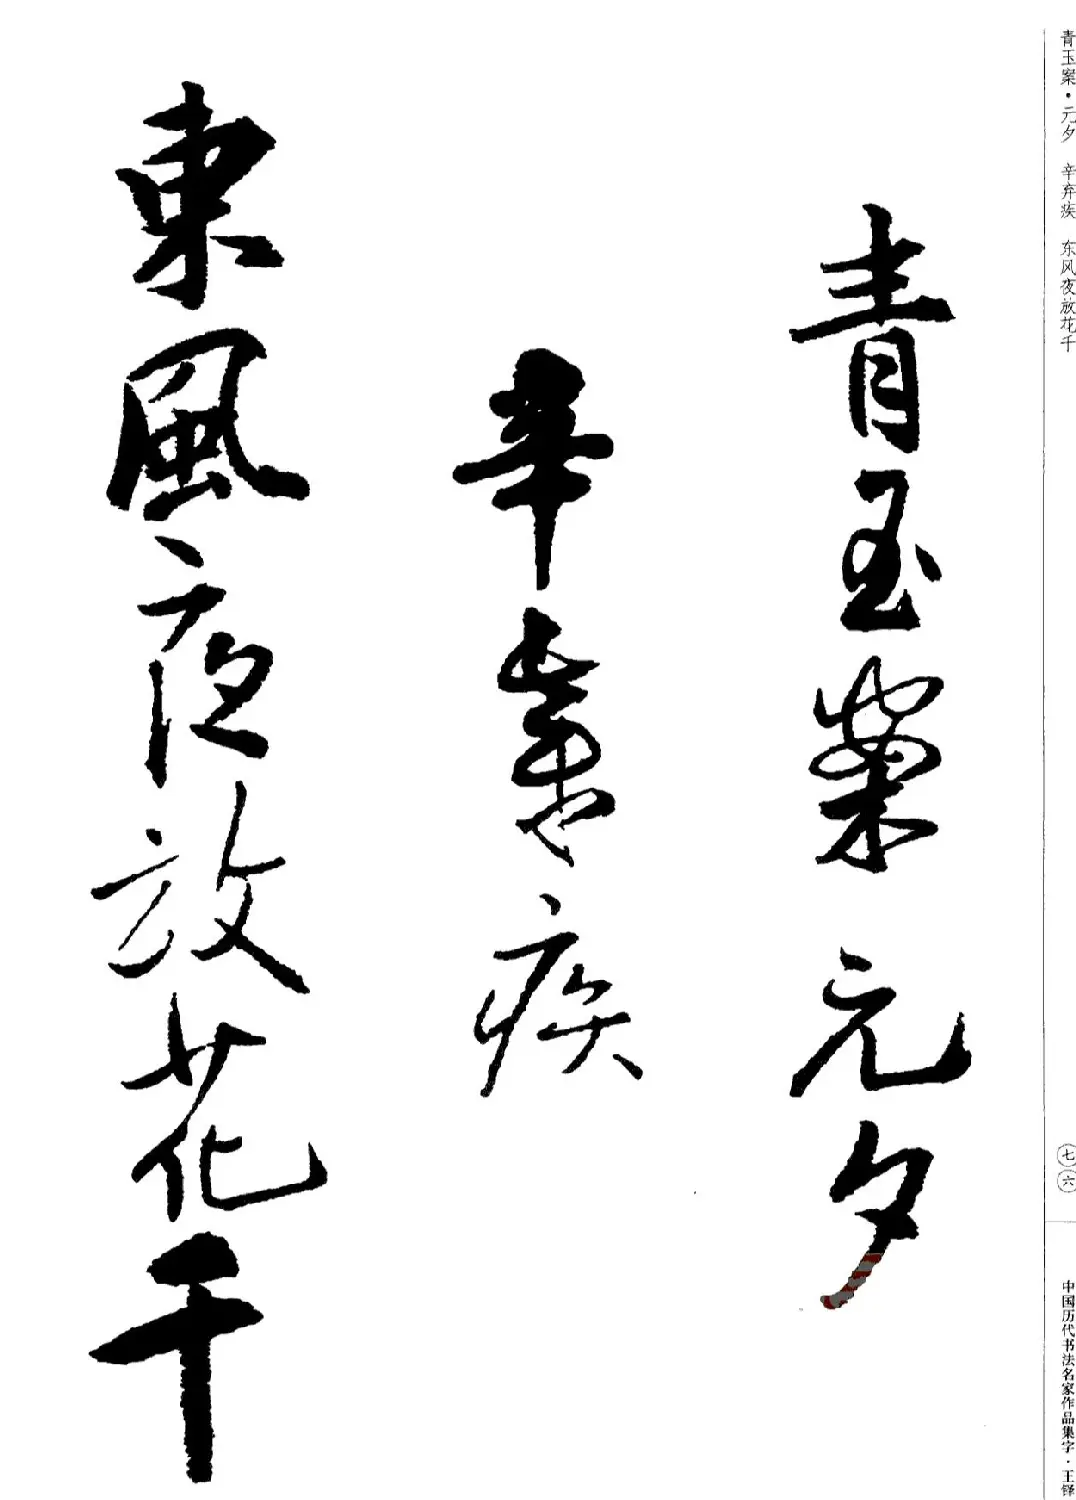 青玉案·元夕 辛弃疾 东风夜放花千
七六
中国历代书法名家作品集字·王铎
青玉案元夕
辛棄疾
東風夜放花千